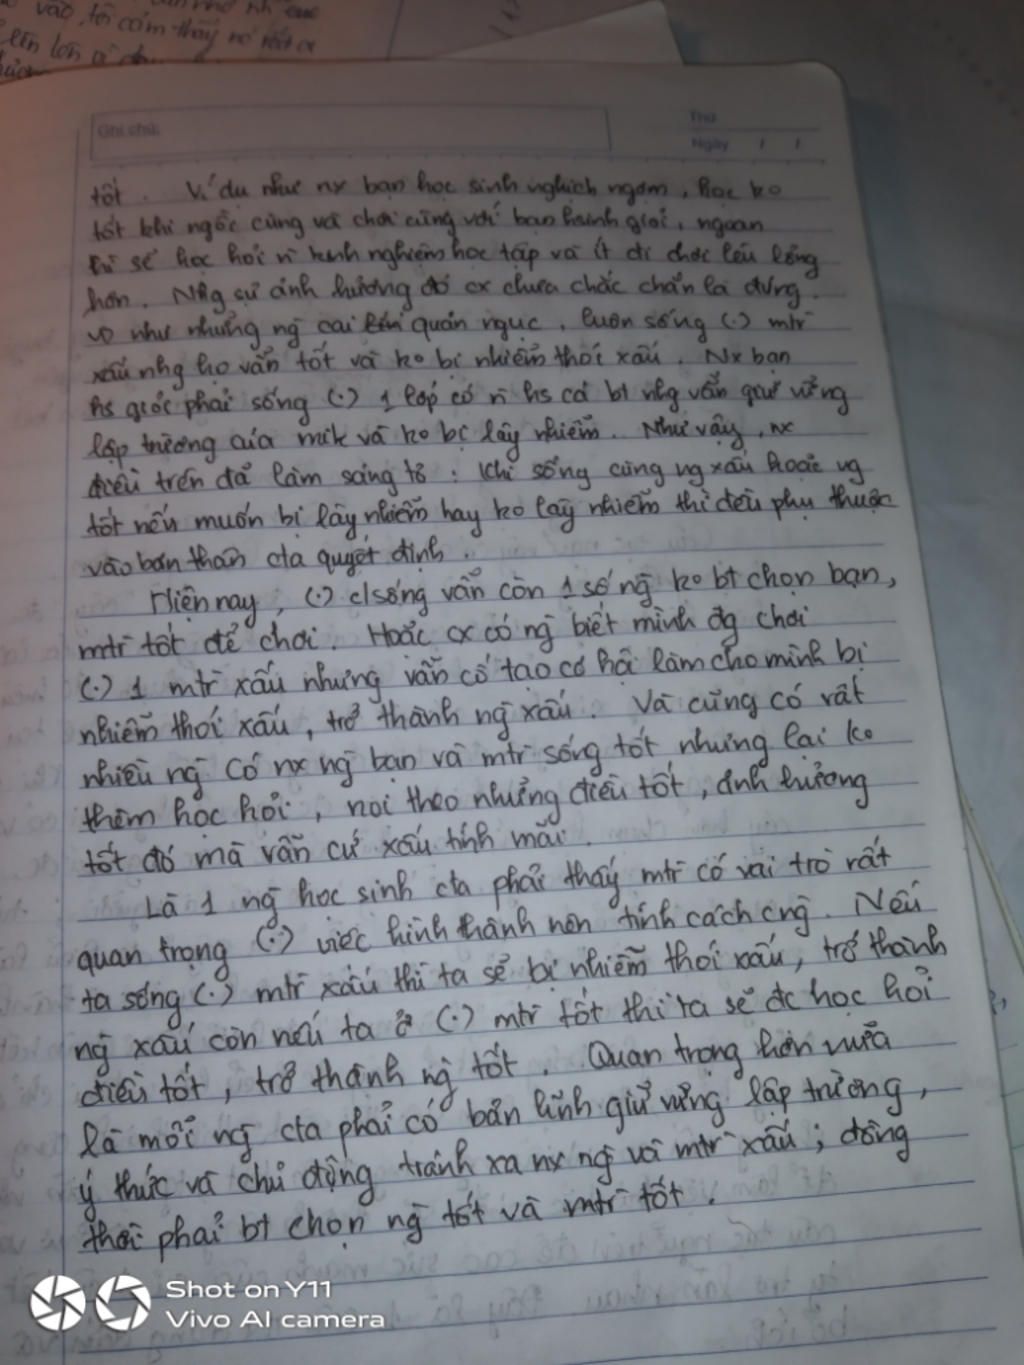 vào, tôi cảm thấy nó rất
Ghi chú:
Thứ
Ngày / /
tốt. Ví dụ như nx bạn học sinh nghịch ngợm, học ko
tốt khi ngồi cùng và chơi cùng với bạn hành giỏi, ngoan
thì sẽ học hỏi n̄ kinh nghiệm học tập và ít đi chơi lêu lổng
hơn. Nhg sự ảnh hưởng đó cx chưa chắc chắn là đúng.
vd như những ng̃ cai quản ngục, luôn sống (.) mtr̀
xấu nhg họ vẫn tốt và ko bị nhiễm thói xấu. Nx bạn
hs giỏi phải sống (.) 1 lớp có n̄ hs cá bt nhg vẫn giữ vững
lập trường của mik và ko bị lây nhiễm. Như vậy, nx
điều trên đã làm sáng tỏ: Khi sống cùng ng xấu hoặc ng
tốt nếu muốn bị lây nhiễm hay ko lây nhiễm thì đều phụ thuộc
vào bản thân cta quyết định.
Hiện nay, (.) c/sống vẫn còn 1 số ng̃ ko bt chọn bạn,
mtr̀ tốt để chơi. Hoặc cx có ng̃ biết mình đg chơi
(.) 1 mtr̀ xấu nhưng vẫn cố tạo cơ hội làm cho mình bị
nhiễm thói xấu, trở thành ng̃ xấu. Và cũng có rất
nhiều ng̃ có nx ng̃ bạn và mtr̀ sống tốt nhưng lại ko
thèm học hỏi, noi theo những điều tốt, ảnh hưởng
tốt đó mà vẫn cứ xấu tính mãi.
Là 1 ng̃ học sinh cta phải thấy mtr̀ có vai trò rất
quan trọng (.) việc hình thành nên tính cách cng̃. Nếu
ta sống (.) mtr̀ xấu thì ta sẽ bị nhiễm thói xấu, trở thành
ng̃ xấu còn nếu ta ở (.) mtr̀ tốt thì ta sẽ đc học hỏi
điều tốt, trở thành ng̃ tốt. Quan trọng hơn nữa
là mỗi ng̃ cta phải có bản lĩnh giữ vững lập trường,
ý thức và chủ động tránh xa nx ng̃ và mtr̀ xấu; đồng
thời phải bt chọn ng̃ tốt và mtr̀ tốt.
Shot on Y11
Vivo AI camera